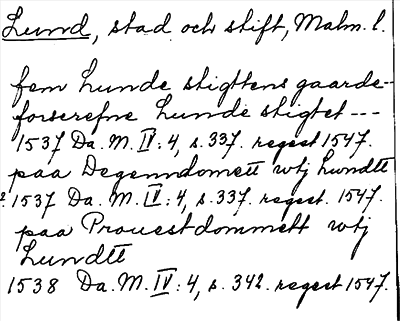 Lund, stad och stift, Malm. l.
fem Lunde stigttens gaarde-
forscrefne Lunde stigtet ---
1537 Da. M. IV: 4, s. 337. regest 1547.
paa Degenndomett wtj Lundtt
1537 Da. M. IV: 4, s. 337. regest. 1547.
paa Prouestdommett wtj
Lundtt
1538 Da. M. IV: 4, s. 342. regest 1547.